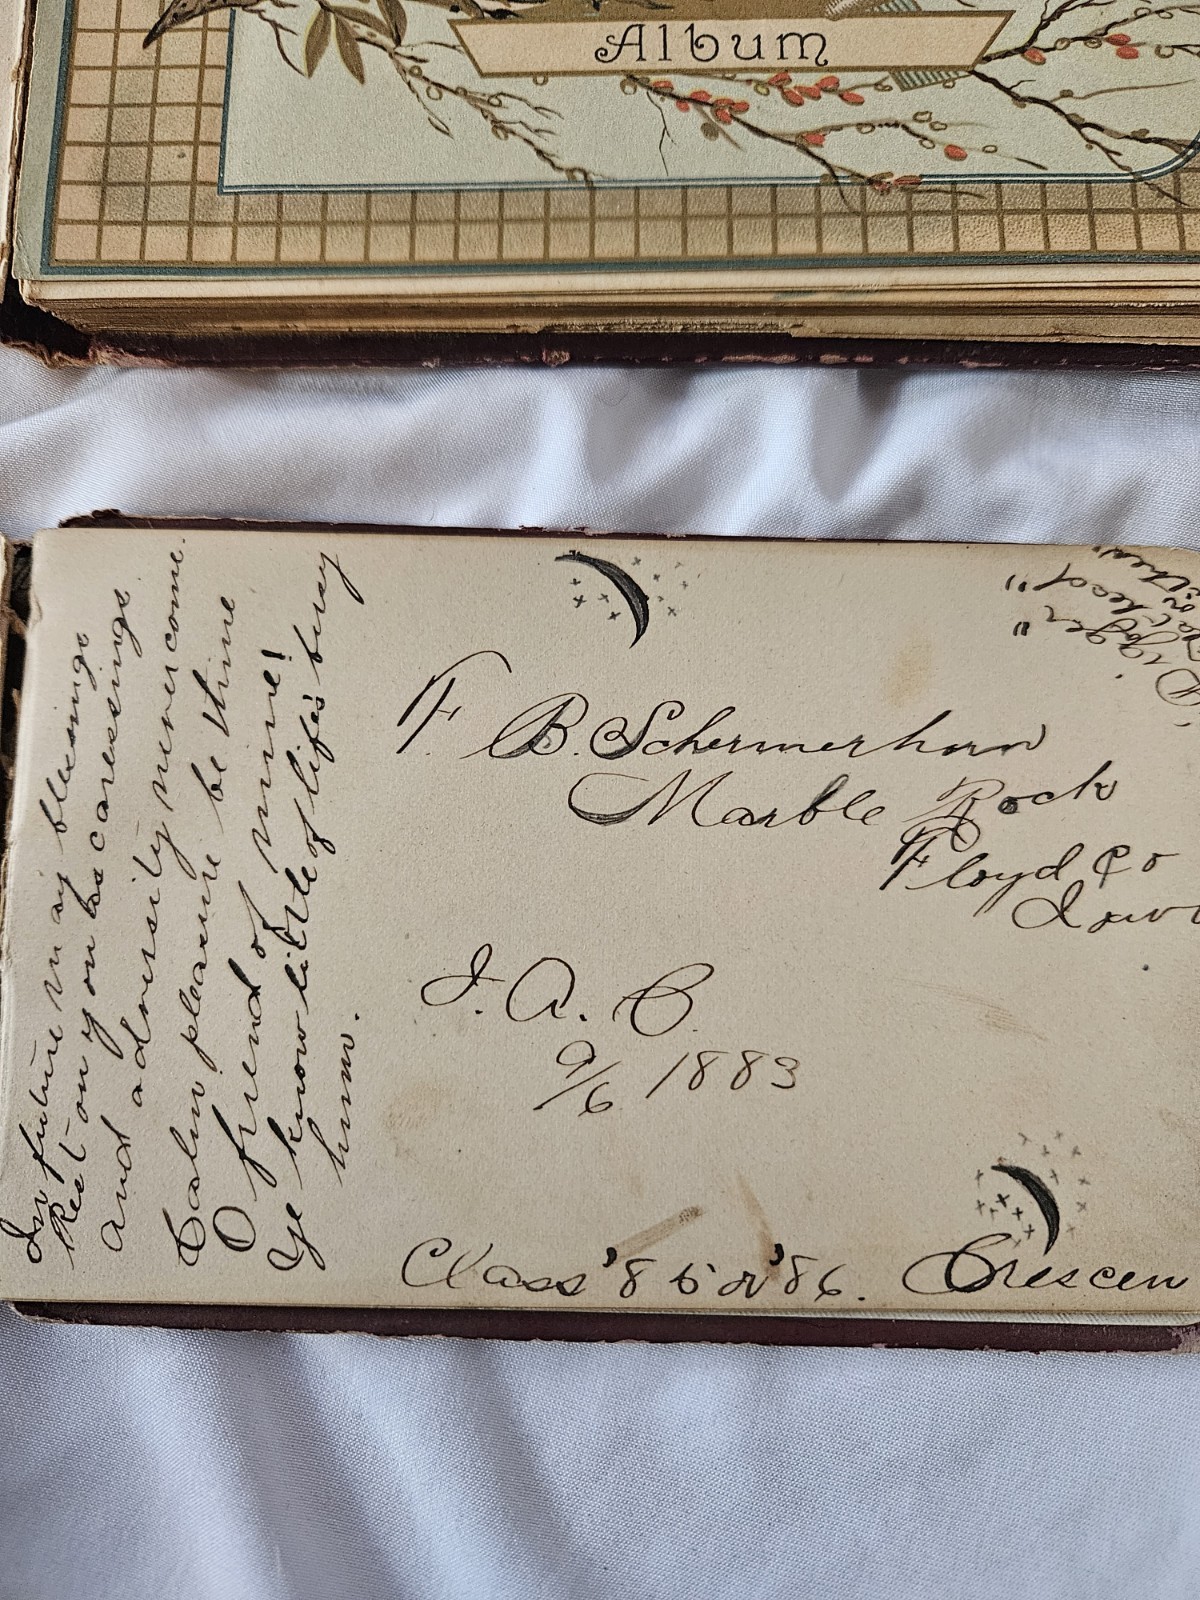 Album
In future may blessings
Rest on you be caressings
And adversity ne'er come
Calm pleasure be thine
O friend of mine!
Ye know little of life's busy
hum.
F. B. Schermerhorn
Marble Rock
Floyd Co
Iow
I. A. C.
9/6 1883
Class '85 or '86.
Crescen